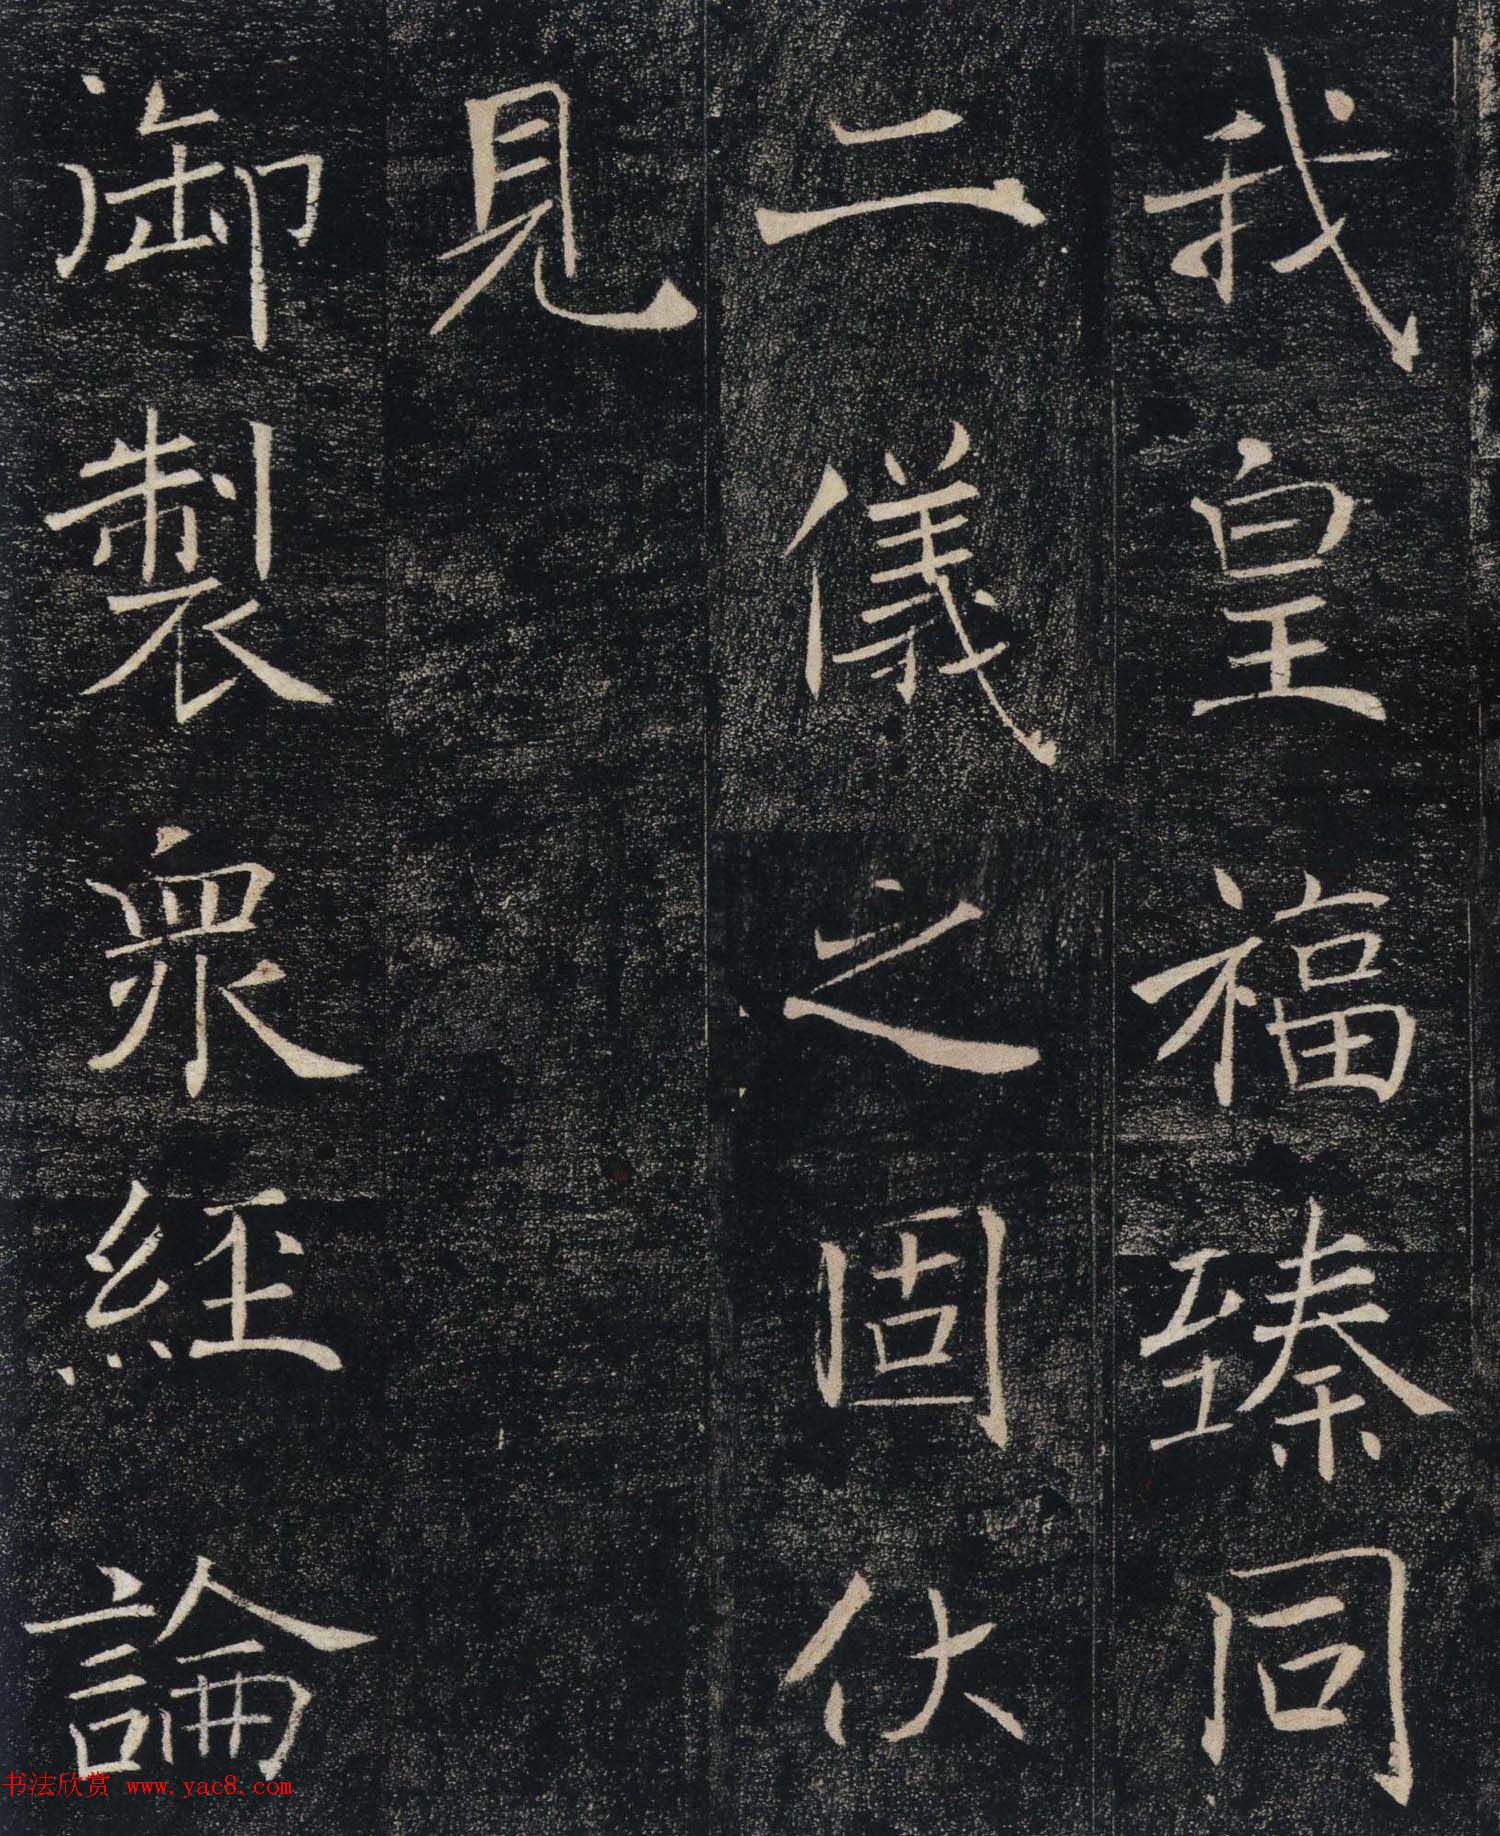 我皇福臻同
二儀之固伏
見
御製眾經論
书法欣赏 www.yac8.com